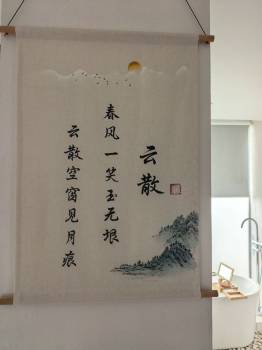 云散
春风一笑玉无垠
云散空窗见月痕